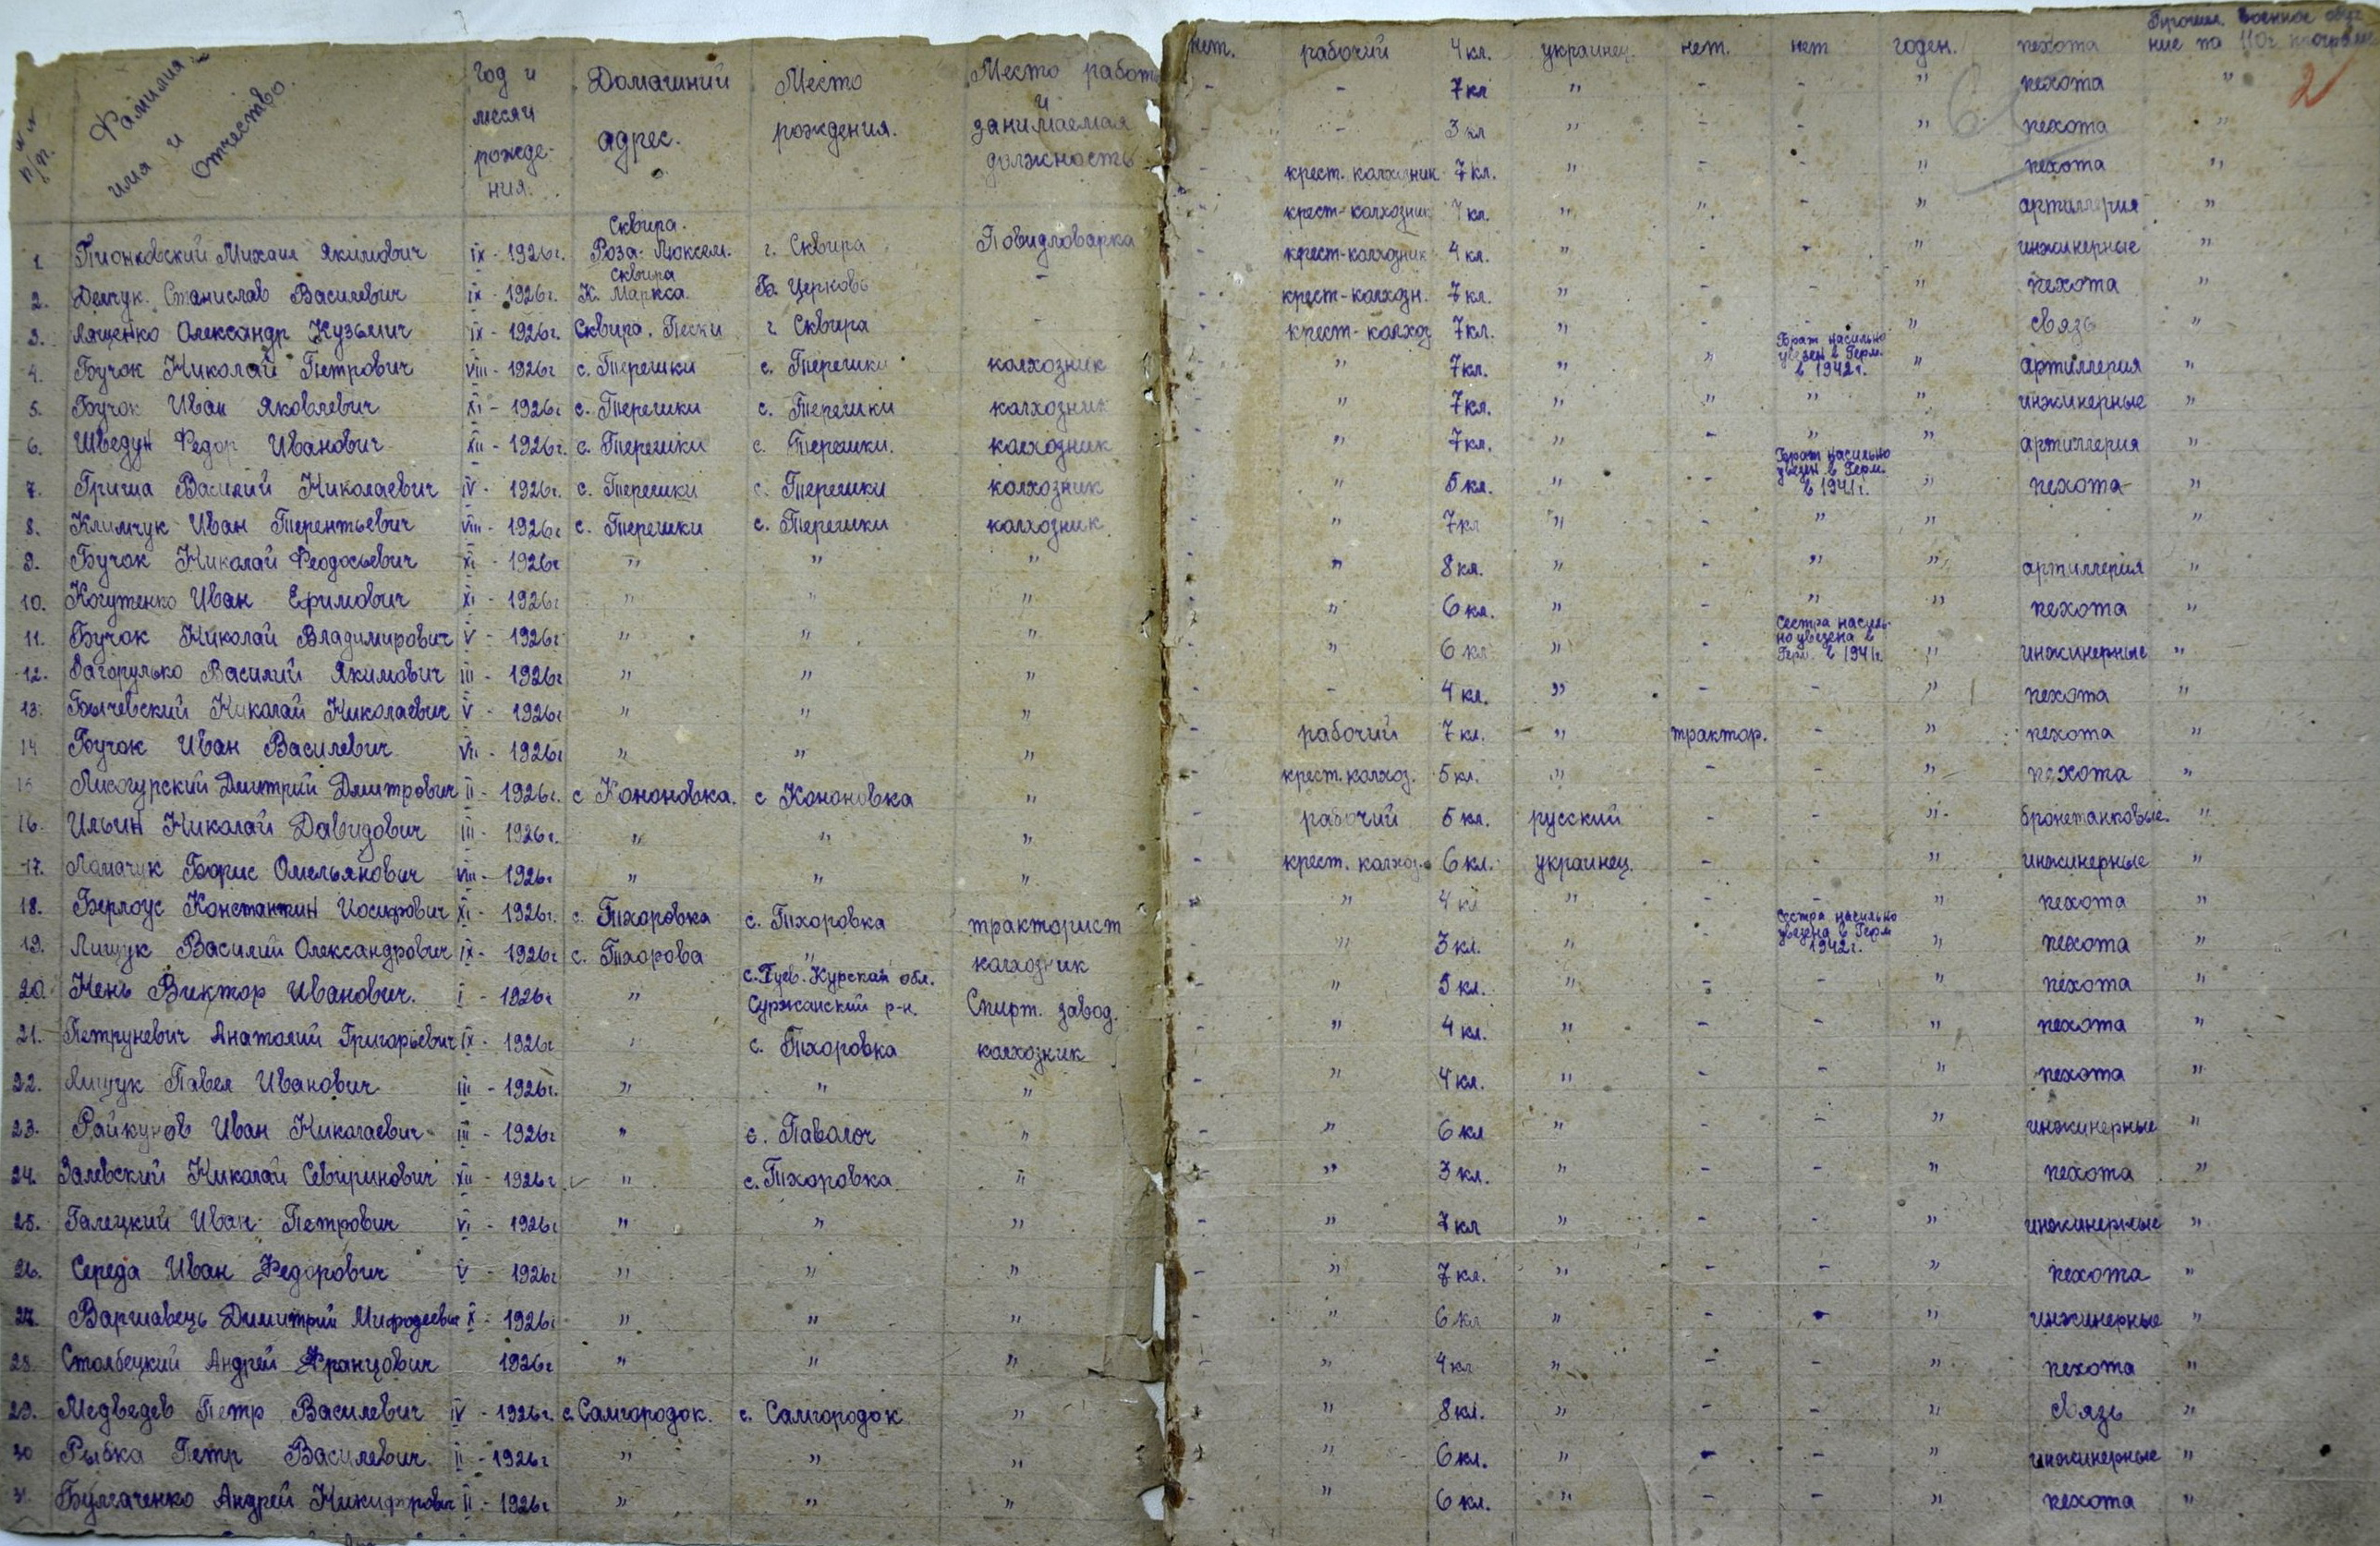 №№ п/п. Фамилия имя и отчество. Год и месяц рождения. Домашний адрес. Место рождения. Место работы и занимаемая должность
1. Пионковский Михаил Якимович IX - 1926г. Сквира. Роза-Люксем. г. Сквира Повидловарка
2. Демчук Станислав Василевич IX - 1926г. Сквира К. Маркса. Б. Церковь -
3. Лященко Олександр Кузьмич IX - 1926г. Сквира. Пески г. Сквира -
4. Бучок Николай Петрович VIII - 1926г с. Терешки с. Терешки колхозник
5. Бучок Иван Яковлевич XI - 1926г с. Терешки с. Терешки колхозник
6. Шведун Федор Иванович XII - 1926г. с. Терешки с. Терешки. колхозник
7. Гриша Василий Николаевич IV - 1926г. с. Терешки с. Терешки колхозник
8. Климчук Иван Терентьевич VIII - 1926г с. Терешки с. Терешки колхозник
9. Бучок Николай Феодосьевич XI - 1926г " " "
10. Когутенко Иван Ефимович XI - 1926г " " "
11. Бучок Николай Владимирович V - 1926г " " "
12. Загорулько Василий Якимович III - 1926г " " "
13. Бычевский Николай Николаевич V - 1926г " " "
14 Бучок Иван Василевич VII - 1926г " " "
15 Лисогурский Дмитрий Дмитрович II - 1926г. с Кононовка. с Кононовка "
16. Ильин Николай Давидович III - 1926г. " " "
17. Ламачук Борис Омельянович VIII - 1926г " " "
18. Берлоус Константин Иосифович XI - 1926г. с. Тхоровка с. Тхоровка тракторист
19. Лищук Василий Олександрович IX - 1926г с. Тхорова " колхозник
20 Нень Виктор Иванович. I - 1926г " Курской обл. Суржанский р-н. Спирт. завод.
21. Петруневич Анатолий Григорьевич IX - 1926г " с. Тхоровка колхозник
22. Лищук Павел Иванович III - 1926г. " " "
23. Райкунов Иван Николаевич III - 1926г " с. Паволоч "
24. Залевский Николай Севиринович XII - 1926г " с. Тхоровка "
25. Галецкий Иван Петрович VI - 1926г " " "
26. Середа Иван Федорович V - 1926г " " "
27. Варшавець Димитрий Мифодеевич X - 1926г " " "
28. Столбецкий Андрей Францович 1926г " " "
29. Медведев Петр Василевич IV - 1926г. с. Самгородок. с. Самгородок "
30 Рыбка Петр Василевич II - 1926г " " "
31. Булгаченко Андрей Никифорович II - 1926г " " "
нет. рабочий 4 кл. украинец. нет. нет годен. пехота Прошел военное обуч ние по 110г програме
- - 7 кл " - - " пехота " 2
- - 3 кл " - - " пехота "
- крест. колхозник 7 кл. " - - " пехота "
- крест-колхозник 7 кл. " " - " артиллерия "
- крест-колхозник 4 кл. " - - " инжинерные "
- крест-колхозн. 7 кл. " - - " пехота "
- крест-колхоз 7 кл. " - - " связь "
- " 7 кл. " " Брат насильно увезен в Герм. в 1942г. " артиллерия "
- " 7 кл. " " " " инжинерные "
- " 7 кл. " - " " артиллерия "
- " 5 кл. " - Брат насильно увезен в Герм. в 1941г. " пехота "
- " 7 кл " - " " "
- " 8 кл. " - " " артиллерия "
- " 6 кл. " - " " пехота "
- " 6 кл " - Сестра насильно увезена в Герм. в 1941г. " инжинерные "
- - 4 кл. " - - " пехота "
- рабочий 7 кл. " трактор. - " пехота "
- крест. колхоз. 5 кл. " - - " пехота "
- рабочий 5 кл. русский - - " бронетанковые. "
- крест. колхоз. 6 кл. украинец. - - " инжинерные "
" " 4 кл " - - " пехота "
- " 3 кл. " - Сестра насильно увезена в Герм 1942г. " пехота "
- " 5 кл. " - - " пехота "
- " 4 кл. " - - " пехота "
- " 4 кл. " - - " пехота "
- " 6 кл " - - " инжинерные "
- " 3 кл. " - - " пехота "
- " 7 кл " - - " инжинерные "
- " 7 кл. " - - " пехота "
- " 6 кл " - - " инжинерные "
- " 4 кл " - - " пехота "
- " 8 кл. " - - " связь "
- " 6 кл. " - - " инжинерные "
- " 6 кл. " - - " пехота "